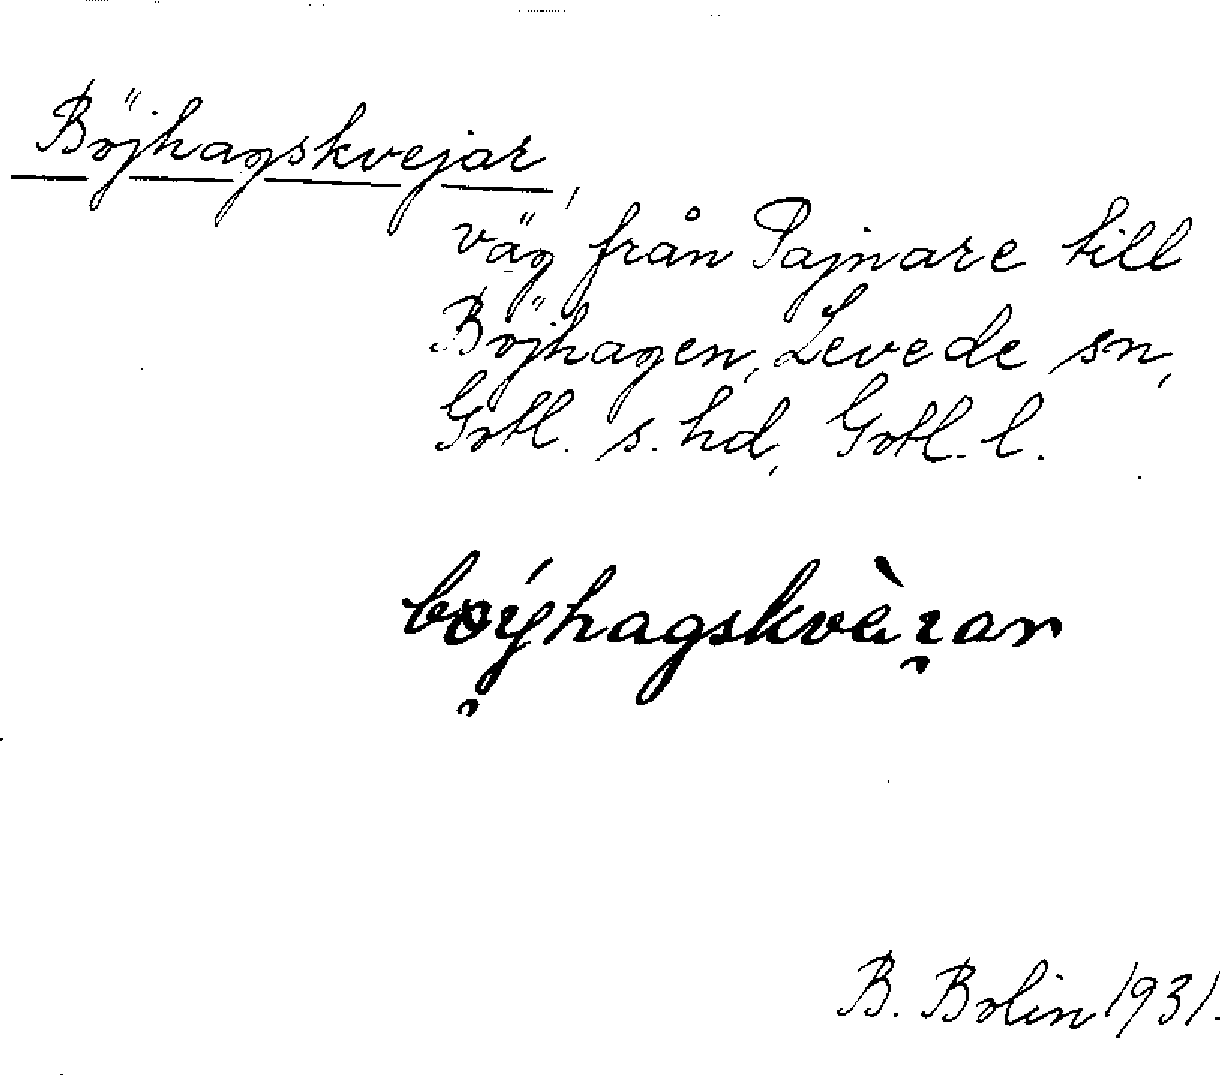 Böjhagskvejar,
väg från Pajnare till
Böjhagen, Levede sn,
Gotl. s. hd, Gotl. l.
B. Bolin 1931.